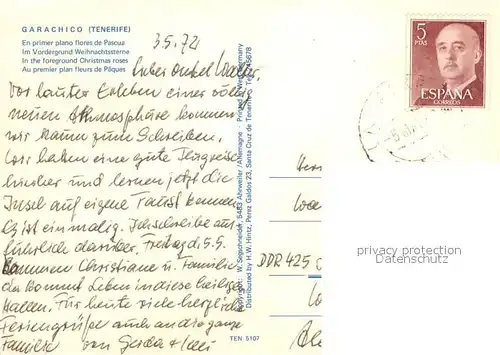 GARACHICO (TENERIFE)
En primer plano flores de Pascua
Im Vordergrund Weihnachtssterne
In the foreground Christmas roses
Au premier plan fleurs de Pâques
3.5.72
Lieber Onkel Walter,
Vor lauter Erleben einer völlig
neuen Athmosphäre kommen
wir kaum zum Schreiben.
Wir haben eine gute Flugreise
hierher und lernen jetzt die
Insel auf eigene Faust kennen
Es ist einmalig. Ich schreibe aus-
führlich darüber. Freitag d. 5.5.
kommen Christiane u. Familie
da kommt Leben in diese heiligen
Hallen. Für heute viele herzliche
Feriengrüße auch an die ganze
Familie von Gerda +
Segschneider, 5483 Ahrweiler/Allemagne - Printed by West-Germany
Distributed by H.W. Hintz, Perez Galdos 23, Santa Cruz de Tenerife
TEN 5107
5
PTAS
ESPAÑA
CORREOS
DDR 425
privacy protection
Datenschutz